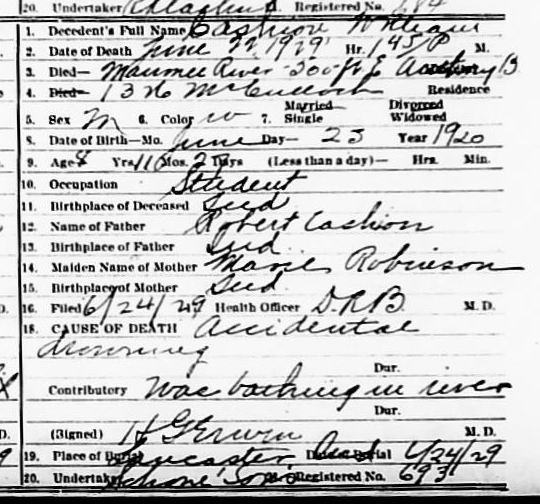 20. Undertaker Registered No. 684
1. Decedent's Full Name Cashion William
2. Date of Death June 22 1929 Hr. 1 45 P M.
3. Died— Maumee River 300 ft E Anthony B
4. Died— 1326 McCulloch Residence
5. Sex M 6. Color W 7. Married Single Divorced Widowed
8. Date of Birth—Mo. June Day— 23 Year 1920
9. Age 8 Yrs. 11 Mos. Days (Less than a day)— Hrs. Min.
10. Occupation Student
11. Birthplace of Deceased Ind
12. Name of Father Robert Cashion
13. Birthplace of Father Ind.
14. Maiden Name of Mother Marie Robinson
15. Birthplace of Mother Ind.
16. Filed 6/24/29 Health Officer D.R.B. M. D.
18. CAUSE OF DEATH Accidental
drowning
Dur.
Contributory Was bathing in river
Dur.
(Signed) H G Erwin M. D.
19. Place of Burial Lancaster Ind Date of Burial 6/24/29
20. Undertaker Sons Registered No. 693